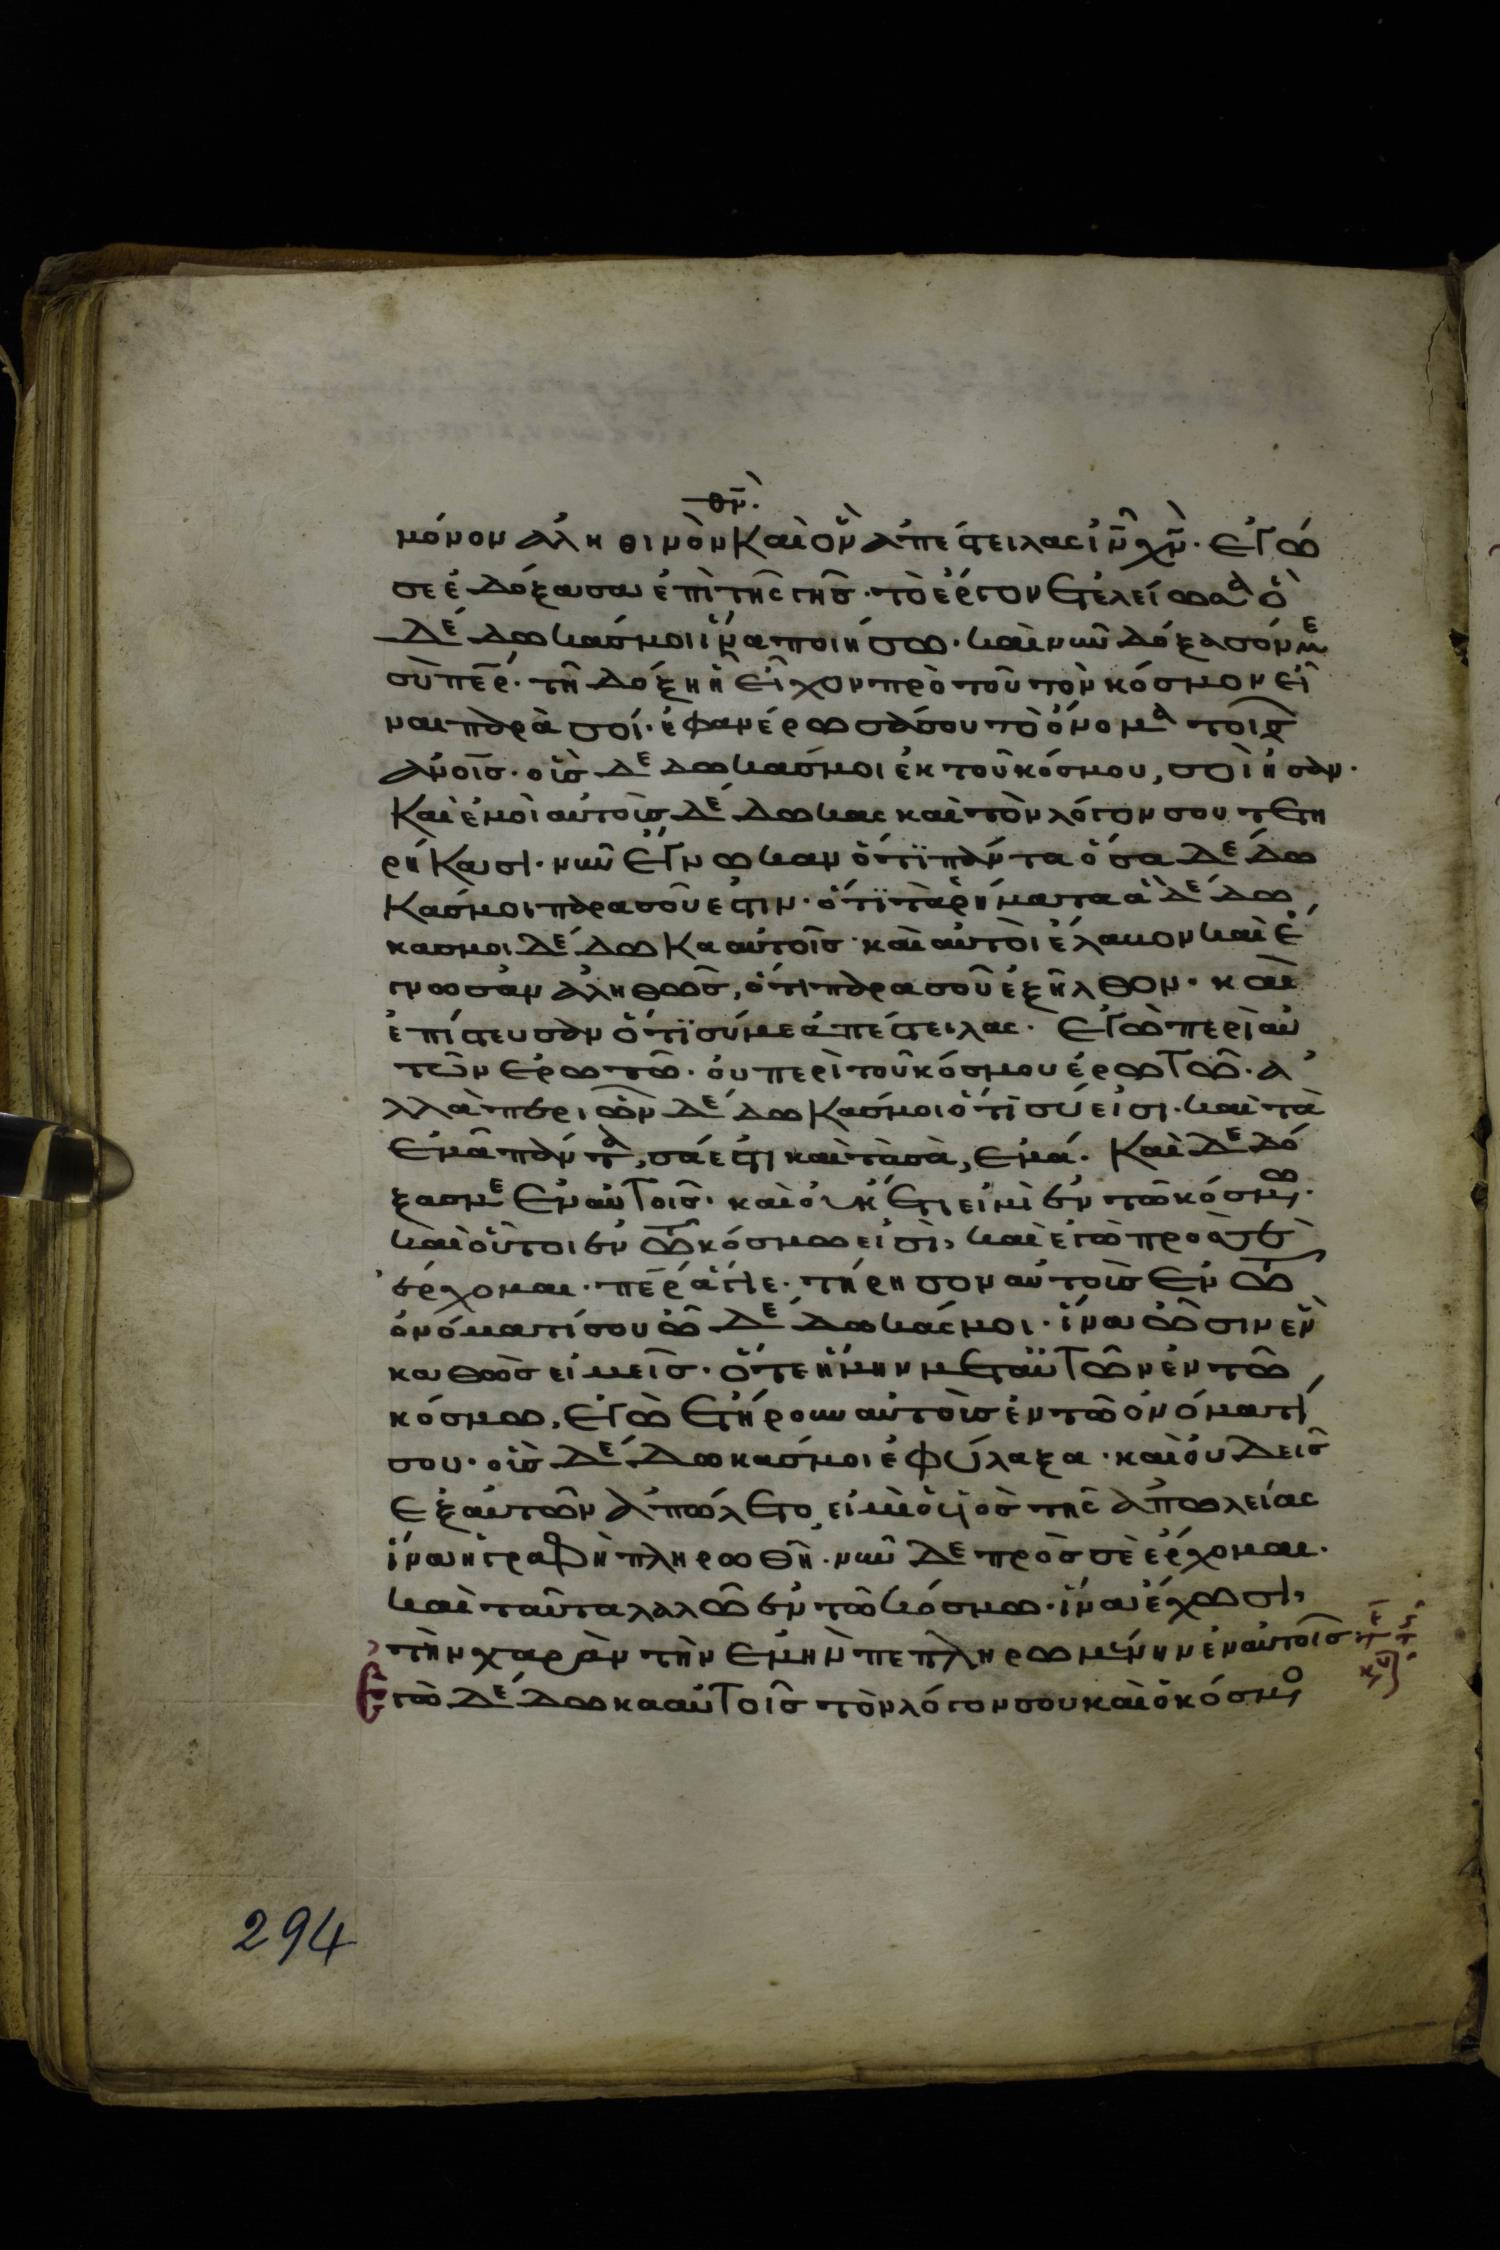 θν̅.
μόνον ἀληθινὸν καὶ ὃν ἀπέστειλας ι̅ν̅ χ̅ν̅. ἐγὼ
σε ἐδόξασα ἐπὶ τῆς γῆς. τὸ ἔργον ἐτελείωσα ὃ
δέδωκάς μοι ἵνα ποιήσω. καὶ νῦν δόξασόν με
σὺ πε̅ρ. τῇ δόξῃ ἣ εἶχον πρὸ τοῦ τὸν κόσμον εἶ
ναι παρὰ σοί. ἐφανέρωσά σου τὸ ὄνομα τοῖς
ἀνοῖς. οὓς δέδωκάς μοι ἐκ τοῦ κόσμου, σοὶ ἦσαν.
Καὶ ἐμοὶ αὐτοὺς δέδωκας καὶ τὸν λόγον σου τετη
ρήκασι. νῦν ἔγνωκαν ὅτϊ πάντα ὅσα δέδω
κάς μοι παρα σοῦ ἐστιν. ὅτϊ τὰ ῥήματα ἃ δέδω
κας μοι δέδωκα αὐτοῖς. καὶ αὐτοὶ ἔλαβον καὶ ἔ
γνωσαν ἀληθῶς, ὅτι παρα σοῦ ἐξῆλθον. καὶ
ἐπίστευσαν ὅτϊ σύ με ἀπέστειλας. ἐγὼ περὶ αὐ
τῶν ἐρωτῶ. οὐ περὶ τοῦ κόσμου ἐρωτῶ. ἀ
λλὰ περι ὧν δέδωκάς μοι ὅτι σύ εἰσι. καὶ τὰ
ἐμὰ πάντα, σά ἐστι καὶ τὰ σὰ, ἐμά. Καὶ δεδό
ξασμε ἐν αὐτοῖς. καὶ οὐκ ἔτι εἰμὶ ἐν τῶ κόσμω.
καὶ οὗτοι ἐν τῶ κόσμω εἰσὶ, καὶ ἐγὼ πρὸς σὲ
ἔρχομαι. πε̅ρ ἅγιε. τήρησον αὐτοὺς ἐν τῶ
ὀνόματί σου ὧ δέδωκάς μοι. ἵνα ὦσιν ἓν
καθὼς εἱμεῖς. ὅτε ἤμην μετ αὐτῶν ἐν τῶ
κόσμω, ἐγὼ ἐτήρουν αὐτοὺς ἐν τῶ ὀνόματί
σου. οὓς δέδωκάς μοι ἐφύλαξα. καὶ οὐδεὶς
ἐξ αὐτῶν ἀπώλετο, εἰ μὴ ὁ υἱὸς τῆς ἀπωλείας
ἵνα ἡ γραφὴ πληρωθῆ. νῦν δε πρὸς σὲ ἔρχομαι.
καὶ ταῦτα λαλῶ ἐν τῶ κόσμω. ἵνα ἔχωσι,
τὴν χαρὰν τὴν ἐμὴν πεπληρωμένην ἐν αὐτοῖς.
Ἐγὼ δέδωκα αὐτοῖς τὸν λόγον σου καὶ ὁ κόσμο
294